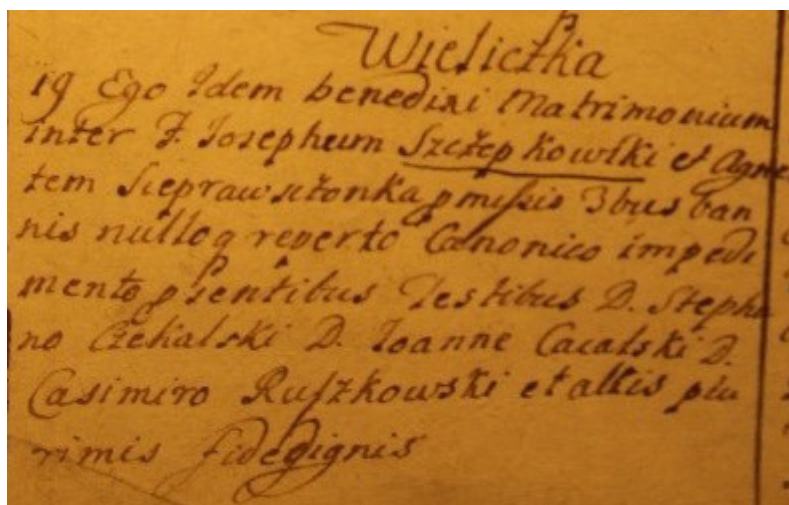 Wieliczka
19 Ego Idem benedixi Matrimonium
inter F. Josephum Szczepkowski et Agne
tem Sieprawszczonka pmissis 3bus ban
nis nulloq reperto Canonico impedi
mento psentibus Testibus D. Stepha
no Czekalski D. Joanne Cacalski D.
Casimiro Ruszkowski et aliis plu
rimis fidedignis